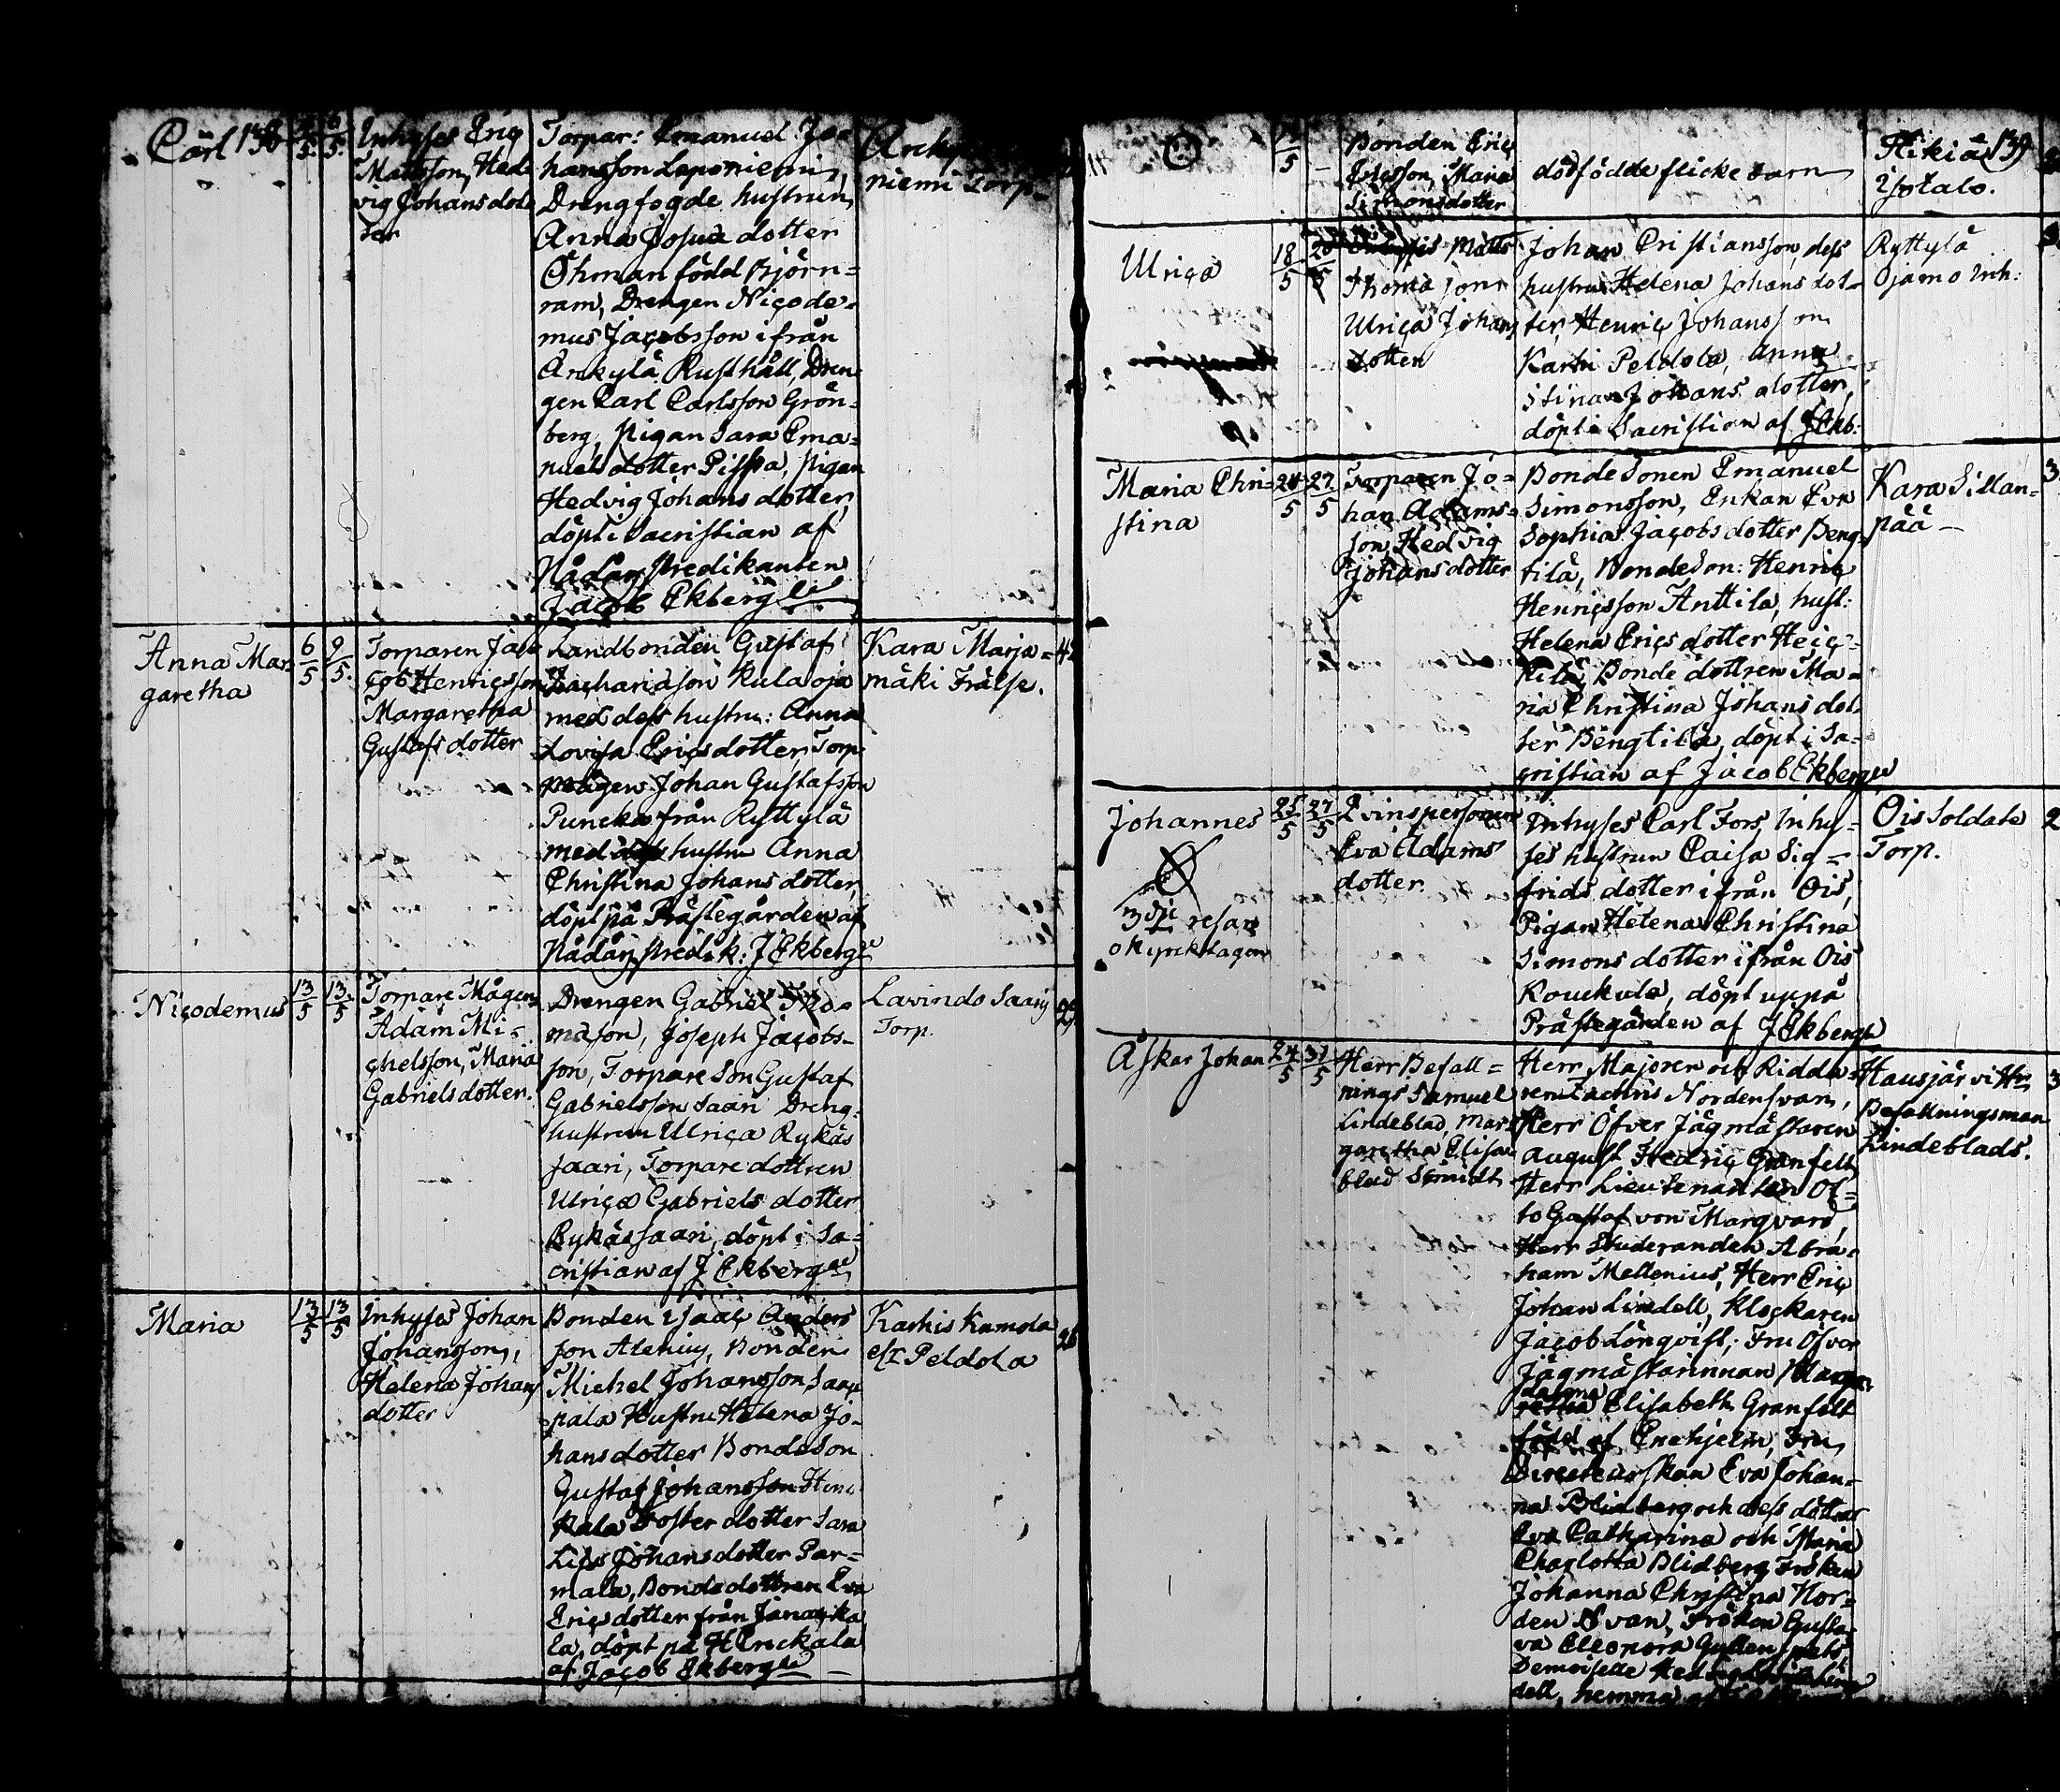 Carl 138
5/5 6/5
Inhyses Eriç
Matsson, Hed-
vig Johansdot-
ter
Torpar: Emanuel Jo-
hansson Leponiemi,
Drengfogde hustrun
Anna Josua dotter
Öhman född Björn=
ram, Drengen Niçode-
mus Jaçobsson ifrån
Arekylä Rusthåll, Dren-
gen Carl Carlsson Grön-
berg, Pigan Sara Ema=
nuels dotter Pissa, Pigan
Hedvig Johans dotter,
döpt i Sacristian af
Nådår Predikanten
Jacob Ekberg
niemi Torp
Anna Mar-
garetha
6/5 9/5
Torparen Ja-
çob Henriçsson
Margaretha
Gustafs dotter
Landbonden Gustaf
Zachariasson Kulaoja
med dess hustru: Anna
Lovisa Eriçsdotter, Torp
mågen Johan Gustafsson
Puncka från Ryttylä
med dess hustru Anna
Christina Johans dotter,
döpt på Prästegården af
Nådår Predik: J Ekberg
Kara Marja=
mäki Frälse.
Niçodemus
13/5 13/5
Torpare Mågen
Adam Mi-
çhelsson, Maria
Gabrielsdotter.
Drengen Gabriel Tho-
masson, Joseph Jaçobs-
son, Torpare Son Gustaf
Gabrielsson Saari Dreng=
hustrun Ulriça Rykäs
saari, Torpare dottren
Ulriça Gabriels dotter
Rykässaari, döpt i Sa=
cristian af J Ekberg
Lavindo Saari
Torp.
Maria
13/5 13/5
Inhyses Johan
Johansson,
Helena Johans
dotter
Bonden Isaaç Anders
son Alenius, Bonden
Michel Johansson Saaçi
pala Hustru Helena Jo-
hans dotter Bondeson
Gustaf Johansson Hin
kala Foster dotter Sara
Lisa Johansdotter Par=
mala, Bonde dottren Eva
Ericsdotter från Janackka
la, döpt på H Erickala
af Jaçob Ekberg
Karhis Kamola
e/r Peldola
Bonden Eriç
Ericsson, Maria
Simonsdotter
dödfödde flicke barn
Hikiä 139
Ystalo.
Ulriça
18/5 20/5
Inhyses Matts
Thomä son
Ulriça Johans
dotter
Johan Cristiansson, dess
hustru Helena Johans dot-
ter, Henriç Johansson
Karhi Peldola, Anna
Stina Johans dotter,
döpt i Sacristian af J Ekb:
Ryttylä
Ojamo Inh:
Maria Chri-
stina
24/5 27/5
Torparen Jo=
han Adams=
son, Hedvig
Johansdotter
Bonde Sonen Emanuel
Simonsson, Enkan Eva
Sophia Jaçobs dotter Beng-
tilä, Bondeson: Henriç
Henriçsson Anttila, hust:
Helena Eriçs dotter Heiç-
kilä, Bonde dottren Ma-
ria Christina Johans dot-
ter Bengtilä, döpt i Sa-
çristian af Jacob Ekberg
Kara Sillan=
pää
Johannes
3dje resan
okyrcktagen
25/5 27/5
Qvinspersonen
Eva Adams
dotter.
Inhyses Carl Fors, Inhy-
ses hustrun Caisa Sig=
frids dotter ifrån Ois,
Pigan Helena Christina
Simons dotter ifrån Ois
Kouckula, döpt uppå
Prästegården af J Ekberg
Ois Soldate
Torp.
Askar Johan
24/5 31/5
Herr Befall=
nings Samuel
Lindeblad, Mar-
garetha Elisa
blad Smidt
Herr Majoren och Ridda-
ren Zachris Nordensvan,
Herr Öfver Jägmästaren
August Fredriç Granfelt,
Herr Lieutenanten Ot=
to Gustaf von Marqvard,
Herr Studeranden Abra-
ham Mellenius, Herr Eriç
Johan Lindell, Klockaren
Jaçob Lönqvist; Fru Öfver
Jägmästarinnan Marga-
retha Elisabeth Granfelt
född af Enehjelm, Fru
Directeurskan Eva Johan-
na Blidberg och dess döttrar
Eva Catharina och Maria
Charlotta Blidberg, Fröken
Johanna Christina Nor=
den Svan, Fröken Gusta-
va Eleonora Gyllenspets
Demoiselle Hedvig Lovisa Lin
dell, hemma
Hausjärvi Hr
Befallningsman
Lindeblads.